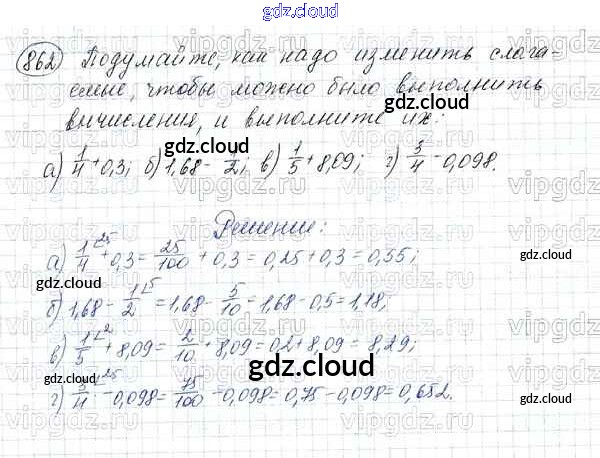 gdz.cloud
862 Подумайте, как надо изменить слага-
емые, чтобы можно было выполнить
gdz.cloud
вычисления, и выполните их:
gdz.cloud
а) 1/4 + 0,3; б) 1,68 - 1/2; в) 1/5 + 8,09; г) 3/4 - 0,098.
gdz.cloud
Решение:
а) 1/4 ^25 + 0,3 = 25/100 + 0,3 = 0,25 + 0,3 = 0,55;
gdz.cloud
gdz.cloud
б) 1,68 - 1/2 ^5 = 1,68 - 5/10 = 1,68 - 0,5 = 1,18;
в) 1/5 ^2 + 8,09 = 2/10 + 8,09 = 0,2 + 8,09 = 8,29;
gdz.cloud
г) 3/4 ^25 - 0,098 = 75/100 - 0,098 = 0,75 - 0,098 = 0,652.
gdz.cloud
gdz.cloud